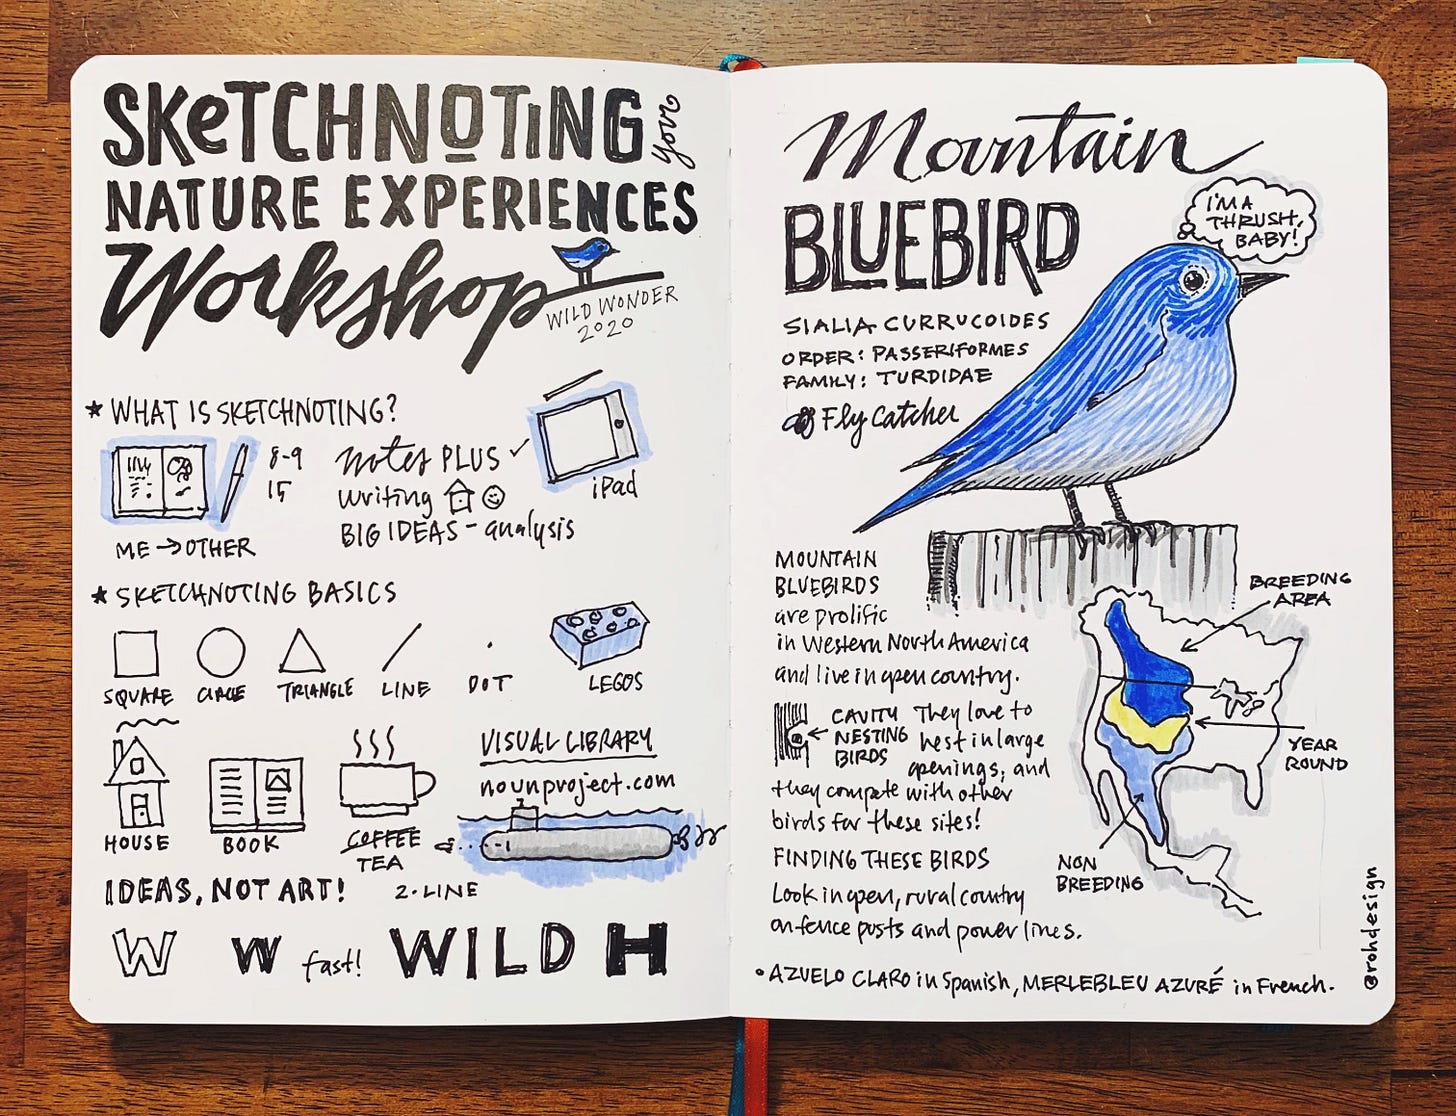 SKeTCHNOTING your
NATURE EXPERIENCES
Workshop
WILD WONDER
2020
★ WHAT IS SKETCHNOTING?
8-9
15
ME → OTHER
notes PLUS ✓
writing
BIG IDEAS - analysis
iPad
★ SKETCHNOTING BASICS
SQUARE CIRCLE TRIANGLE LINE DOT LEGOS
HOUSE BOOK COFFEE
TEA
VISUAL LIBRARY
nounproject.com
IDEAS, NOT ART! 2·LINE
W W fast! WILD H
Mountain
BLUEBIRD
I'M A
THRUSH,
BABY!
SIALIA CURRUCOIDES
ORDER: PASSERIFORMES
FAMILY: TURDIDAE
Fly Catcher
MOUNTAIN
BLUEBIRDS
are prolific
in Western North America
and live in open country.
← CAVITY
NESTING
BIRDS
They love to
nest in large
openings, and
they compete with other
birds for these sites!
FINDING THESE BIRDS
Look in open, rural country
on fence posts and power lines.
BREEDING
AREA
YEAR
ROUND
NON
BREEDING
• AZUELO CLARO in Spanish, MERLEBLEU AZURÉ in French.
@rohdesign